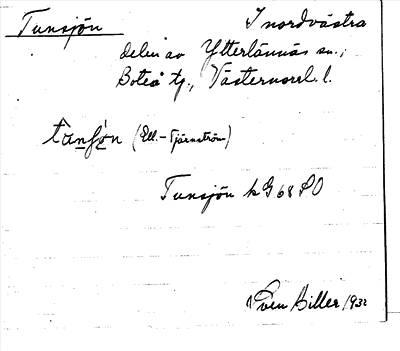 Tunsjön I nordvästra
delen av Ytterlännäs sn.,
Boteå tg., Västernorrl. l.
(Ell.-Tjärnström)
Tunsjön k G 68 SO
Sven Biller 1932